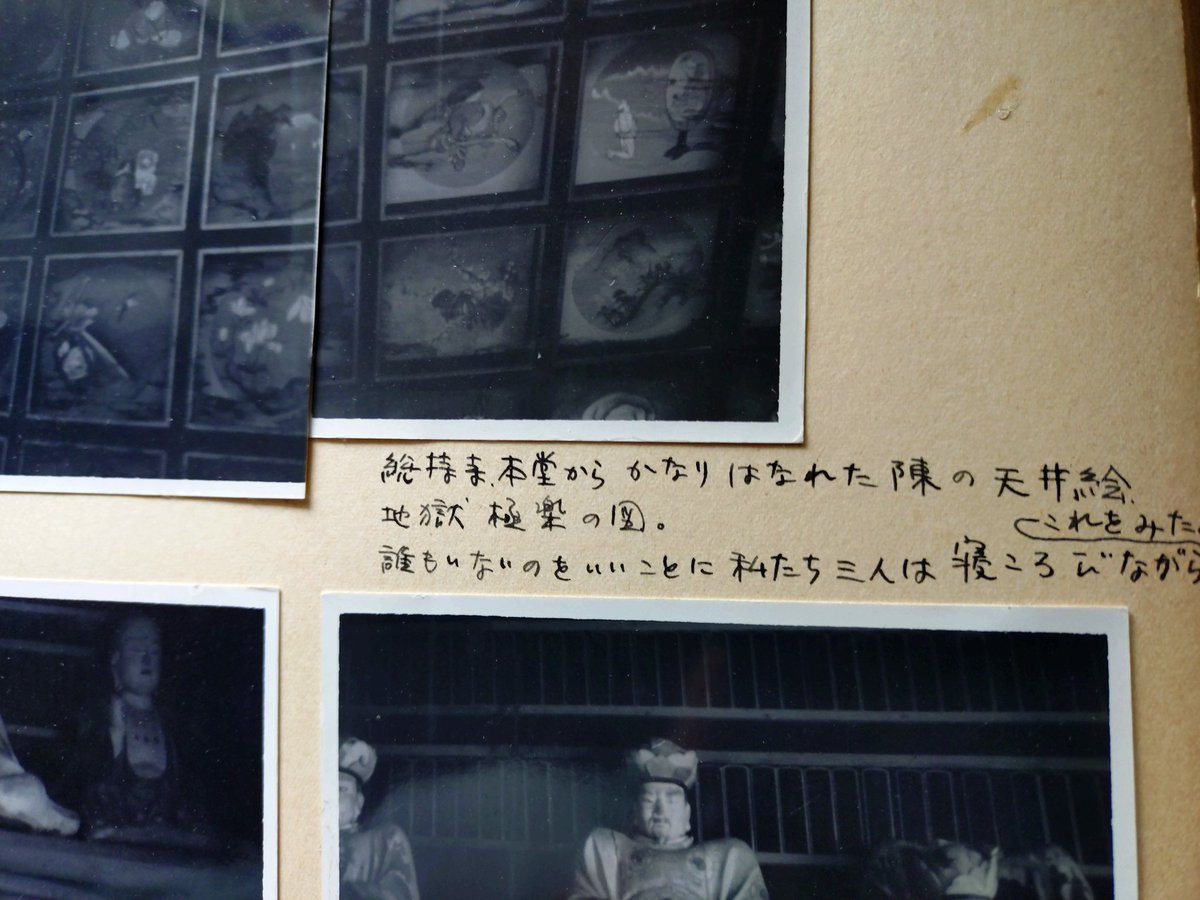 総持寺、本堂からかなりはなれた陳の天井絵、
地獄極楽の図。
(これをみた
誰もいないのをいいことに私たち三人は寝ころびながら